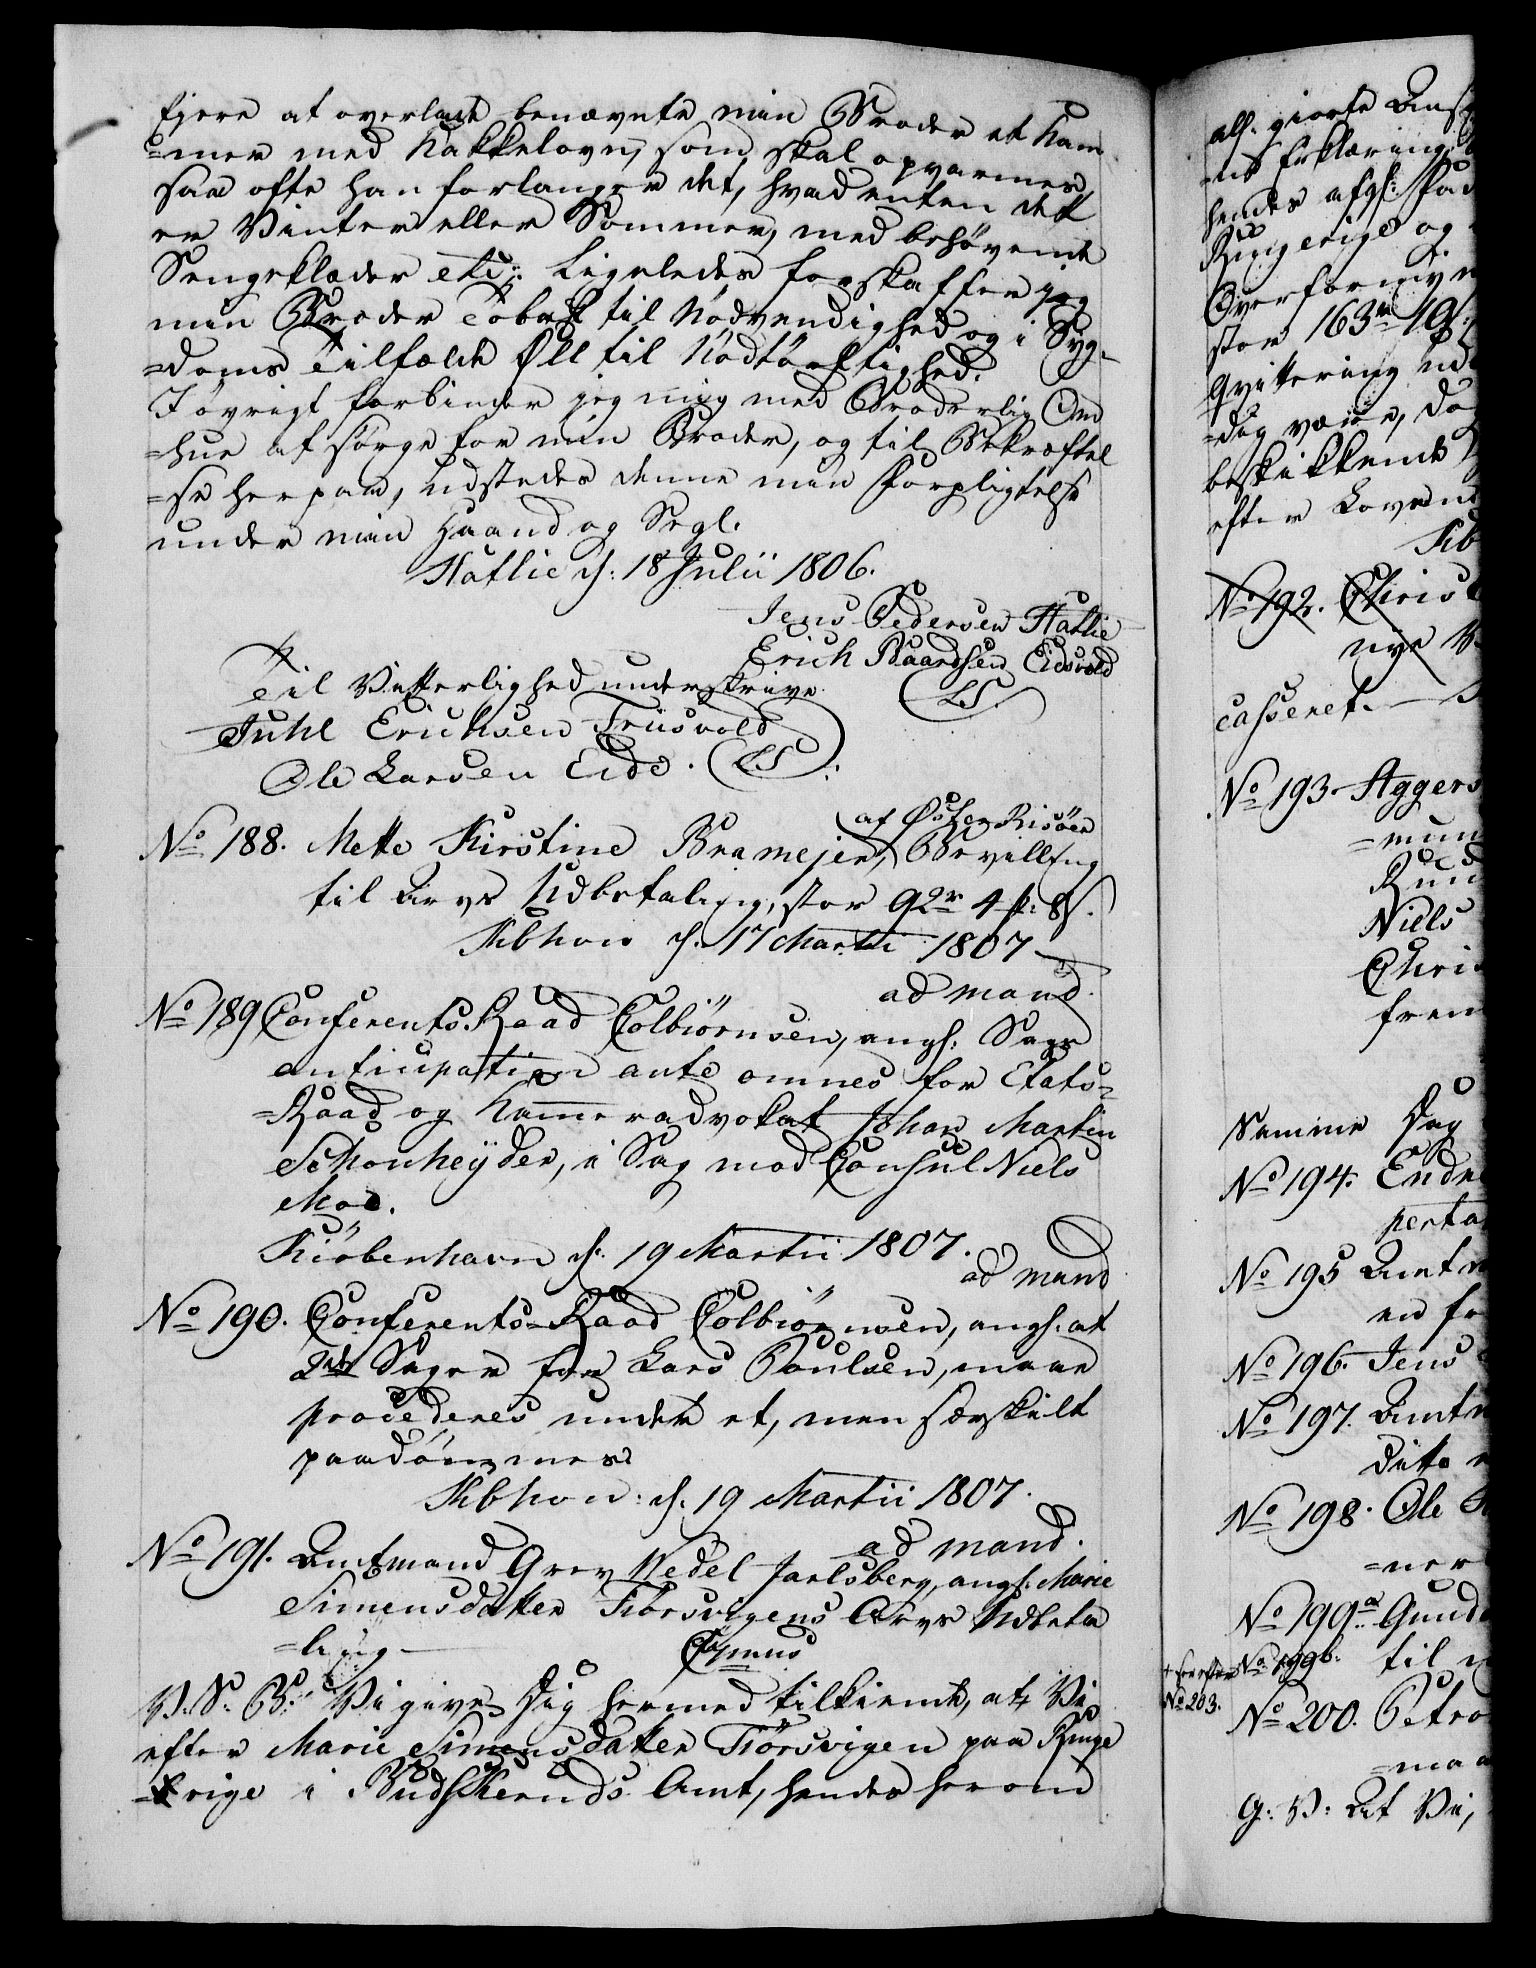 Ejere at overlade benævnte min Broder et Kam
=mer med Kakkelovn, som skal opvarmes,
saa ofte han forlanger det, hvad enten det
er Vinter eller Sommer, med behövende
Sengeklæder etc: Ligeledes forskaffer jeg
min Broder Tobak til Nödvendighed og i Syg-
=doms Tilfælde Øll til Nödtörftighed.
I övrigt forbinder jeg mig med Broderlig Om
=hue at sörge for min Broder, og til Bekræftel
=se herpaa, udstedes denne min Forpligtelse
under min Haand og Segl.
Hatlie d: 18 Julii 1806.
Jens Pedersen Hatlie
Erich Baardsen Eidsvold
Til Vitterlighed underskrive.
(LS.)
Juhl Erichsen Friisvold
Ole Larsen Eide. (LS):
af Øster Risöer
No 188. Mette Kirstine Bramejer, Bevilling
til Arvs Udbetaling, stor 92r 4 p: 8s.
Kbhvn d. 17 Martii 1807
ad mand.
No 189 Conferents-Raad Colbiörnsen, angl: Sags
anticipation ante omnes for Etats-
=Raad og Kammeradvokat Johan Martin
Schonheÿder, i Sag mod Consul Niels
Moe.
Kiöbenhavn d: 19 Martii 1807.
ad mand
No 190. Conferents-Raad Colbiörnsen, angl. at
2de Sager for Lars Poulsen, maae
procederes under et, men særskilt
paadömmes
Kbhvn: d. 19 Martii 1807.
ad mand.
No 191. Amtmand Grev Wedel Jarlsberg, angl: Marie
Simensdatter Tiörsvigens Arvs Udbeta
=ling
V. S. B: Vi give Dig hermed tilkiende, at Vi
efter Marie Simensdatter Tiörsvigen paa Ringe
=rige i Budskeruds Amt, hendes herom
all. giorte Ans
=us Erklæring
hendes afgl:
Ringerige og
Overformyn
stor 163r 19s
Qvittering
=dig være, dog
beskikkende
efter Loven
Kb
No 192. Christ
nye
casseret.
No 193. Aggers
=mun
Niels
Chris
frem
Samme Dag
No 194. Endr
No 195 Amtm
en fr
No 196. Jens
No 197. Amtm
Ditto
No 198. Ole
=ner
No 199a Gund
No 199b. til
No 203.
No 200. Petro
=maa
G: V: At Vi,